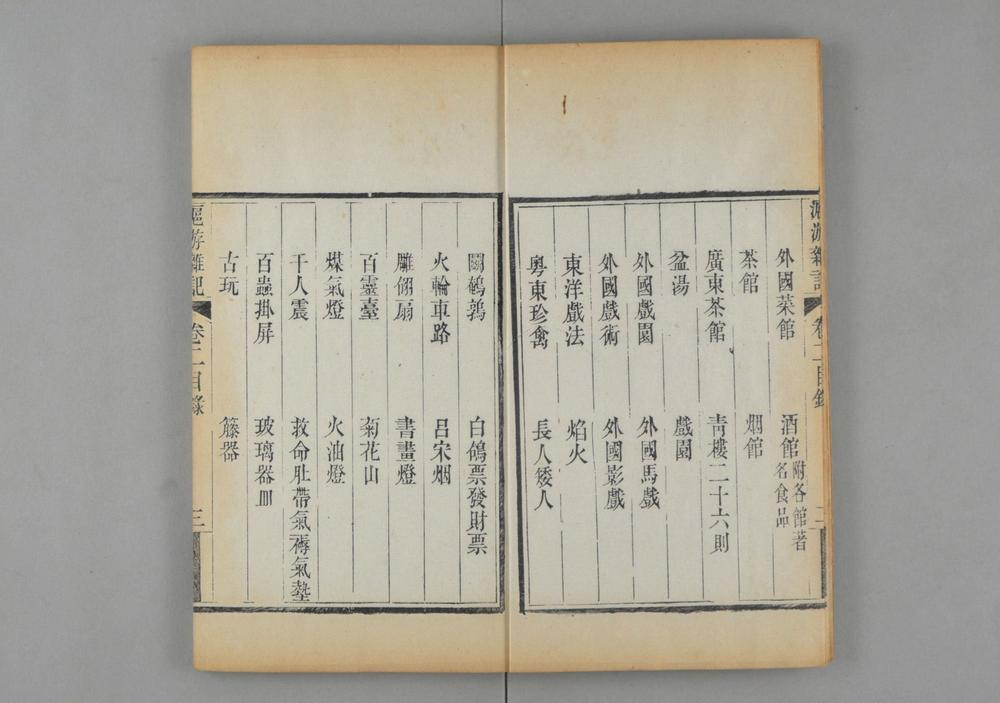 滬游雜記 卷二目錄 二
外國菜館 酒館附各館著名食品
茶館 烟館
廣東茶館 青樓二十六則
盆湯 戲園
外國戲園 外國馬戲
外國戲術 外國影戲
東洋戲法 焰火
粵東珍禽 長人矮人
鬭鵪鶉 白鴿票發財票
火輪車路 呂宋烟
雕翎扇 書畫燈
百靈臺 菊花山
煤氣燈 火油燈
千人震 救命肚帶氣褥氣墊
百蟲掛屏 玻璃器皿
古玩 籐器
滬游雜記 卷二目錄 三